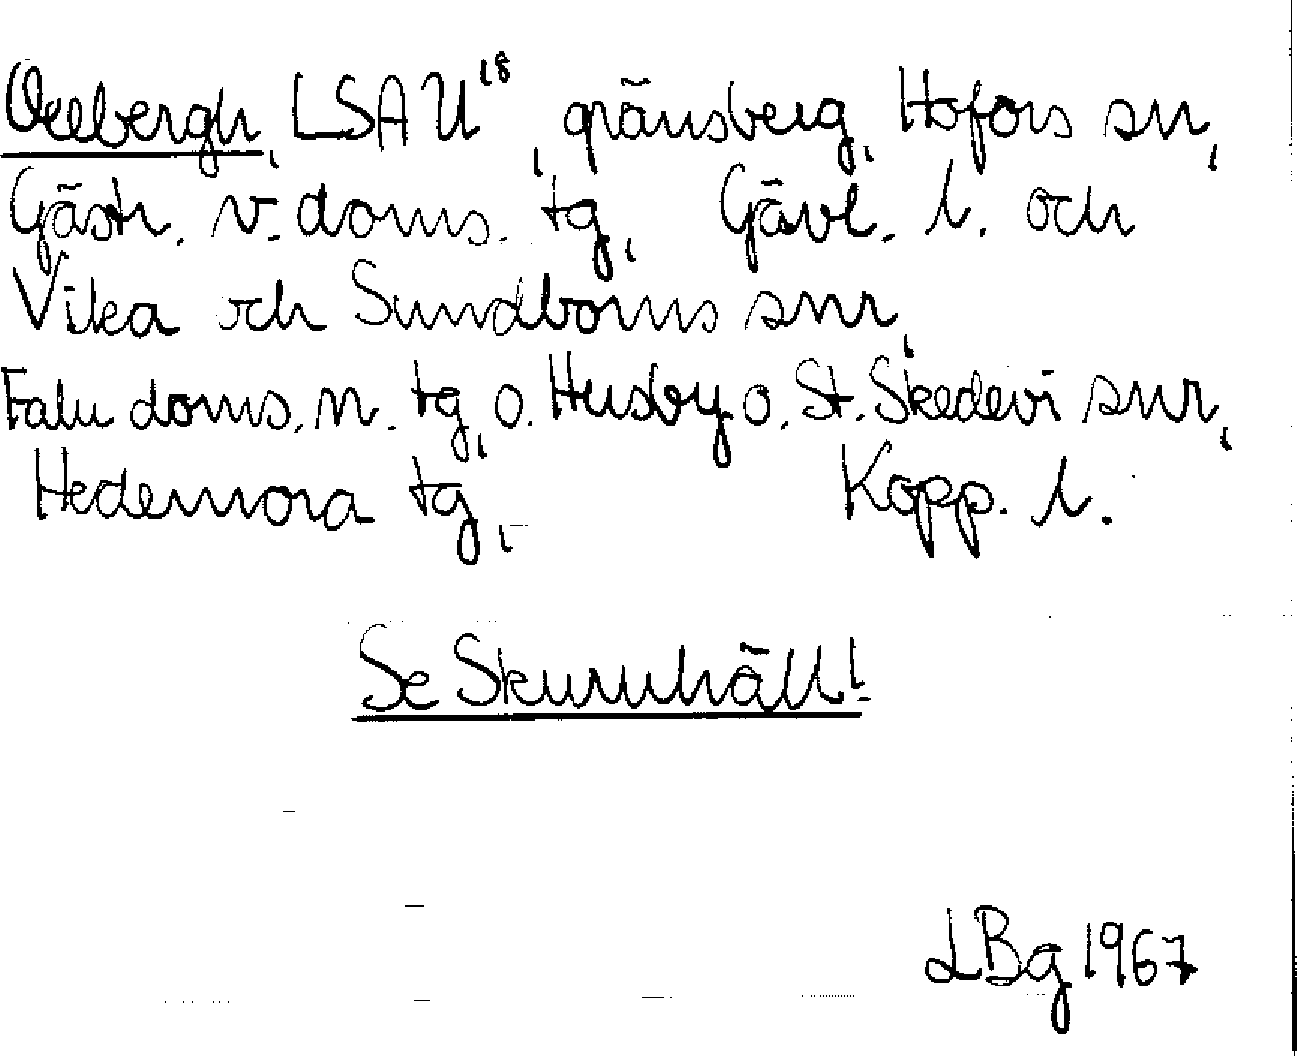 Oelbergh, LSA U18, gränsberg, Hofors sn,
Gästr. v. doms. tg, Gävl. l. och
Vika och Sundborns snr,
Falu doms. n. tg, o. Husby o. St. Skedevi snr,
Hedemora tg, Kopp. l.
Se Skuruhäll!
LBg 1967